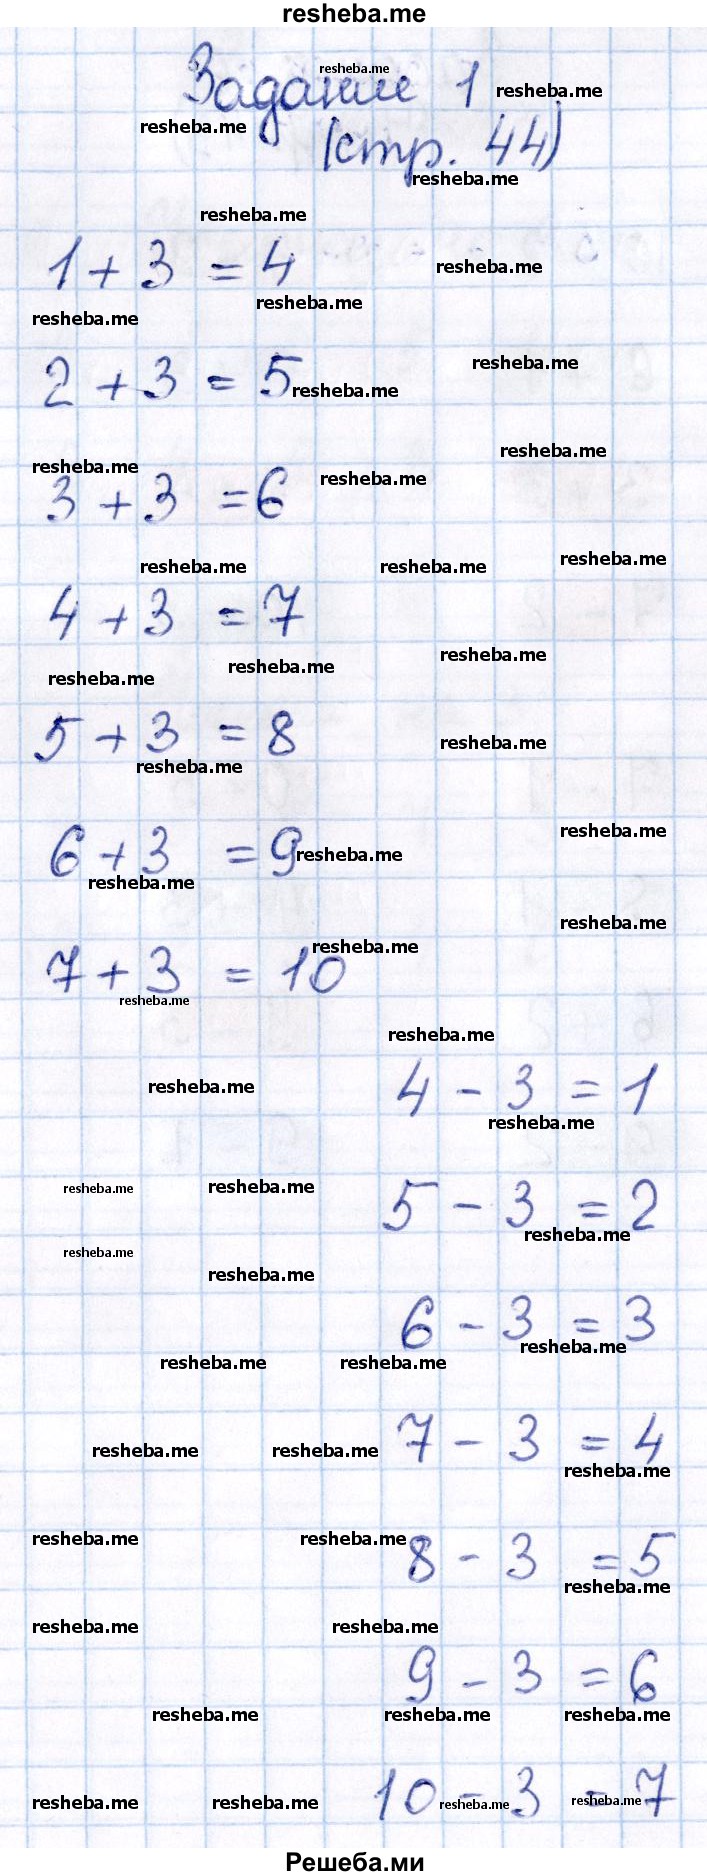 resheba.me
Задание 1
(стр. 44)
1 + 3 = 4
2 + 3 = 5
3 + 3 = 6
4 + 3 = 7
5 + 3 = 8
6 + 3 = 9
7 + 3 = 10
4 - 3 = 1
5 - 3 = 2
6 - 3 = 3
7 - 3 = 4
8 - 3 = 5
9 - 3 = 6
10 - 3 = 7
Решеба.ми